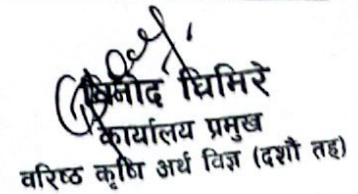 बिनोद घिमिरे
कार्यालय प्रमुख
वरिष्ठ कृषि अर्थ विज्ञ (दशौ तह)